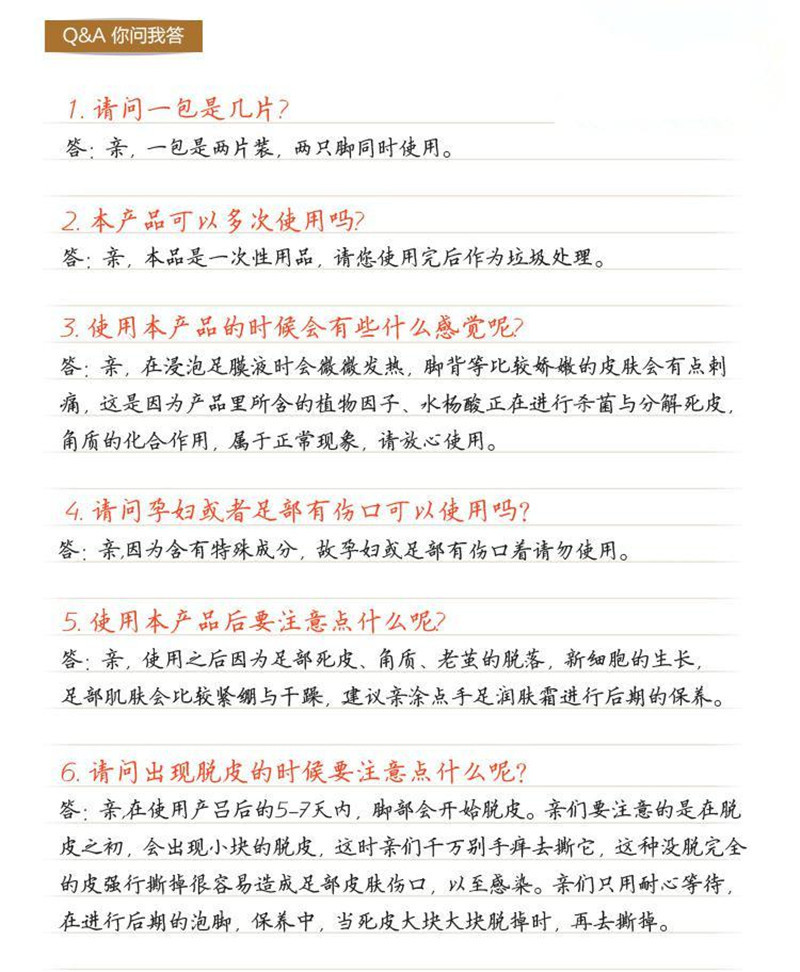 Q&A 你问我答
1. 请问一包是几片?
答：亲，一包是两片装，两只脚同时使用。
2. 本产品可以多次使用吗?
答：亲，本品是一次性用品，请您使用完后作为垃圾处理。
3. 使用本产品的时候会有些什么感觉呢?
答：亲，在浸泡足膜液时会微微发热，脚背等比较娇嫩的皮肤会有点刺
痛，这是因为产品里所含的植物因子、水杨酸正在进行杀菌与分解死皮，
角质的化合作用，属于正常现象，请放心使用。
4. 请问孕妇或者足部有伤口可以使用吗?
答：亲,因为含有特殊成分，故孕妇或足部有伤口着请勿使用。
5. 使用本产品后要注意点什么呢?
答：亲，使用之后因为足部死皮、角质、老茧的脱落，新细胞的生长，
足部肌肤会比较紧绷与干躁，建议亲涂点手足润肤霜进行后期的保养。
6. 请问出现脱皮的时候要注意点什么呢?
答：亲,在使用产吕后的5-7天内，脚部会开始脱皮。亲们要注意的是在脱
皮之初，会出现小块的脱皮，这时亲们千万别手痒去撕它，这种没脱完全
的皮强行撕掉很容易造成足部皮肤伤口，以至感染。亲们只用耐心等待，
在进行后期的泡脚，保养中，当死皮大块大块脱掉时，再去撕掉。